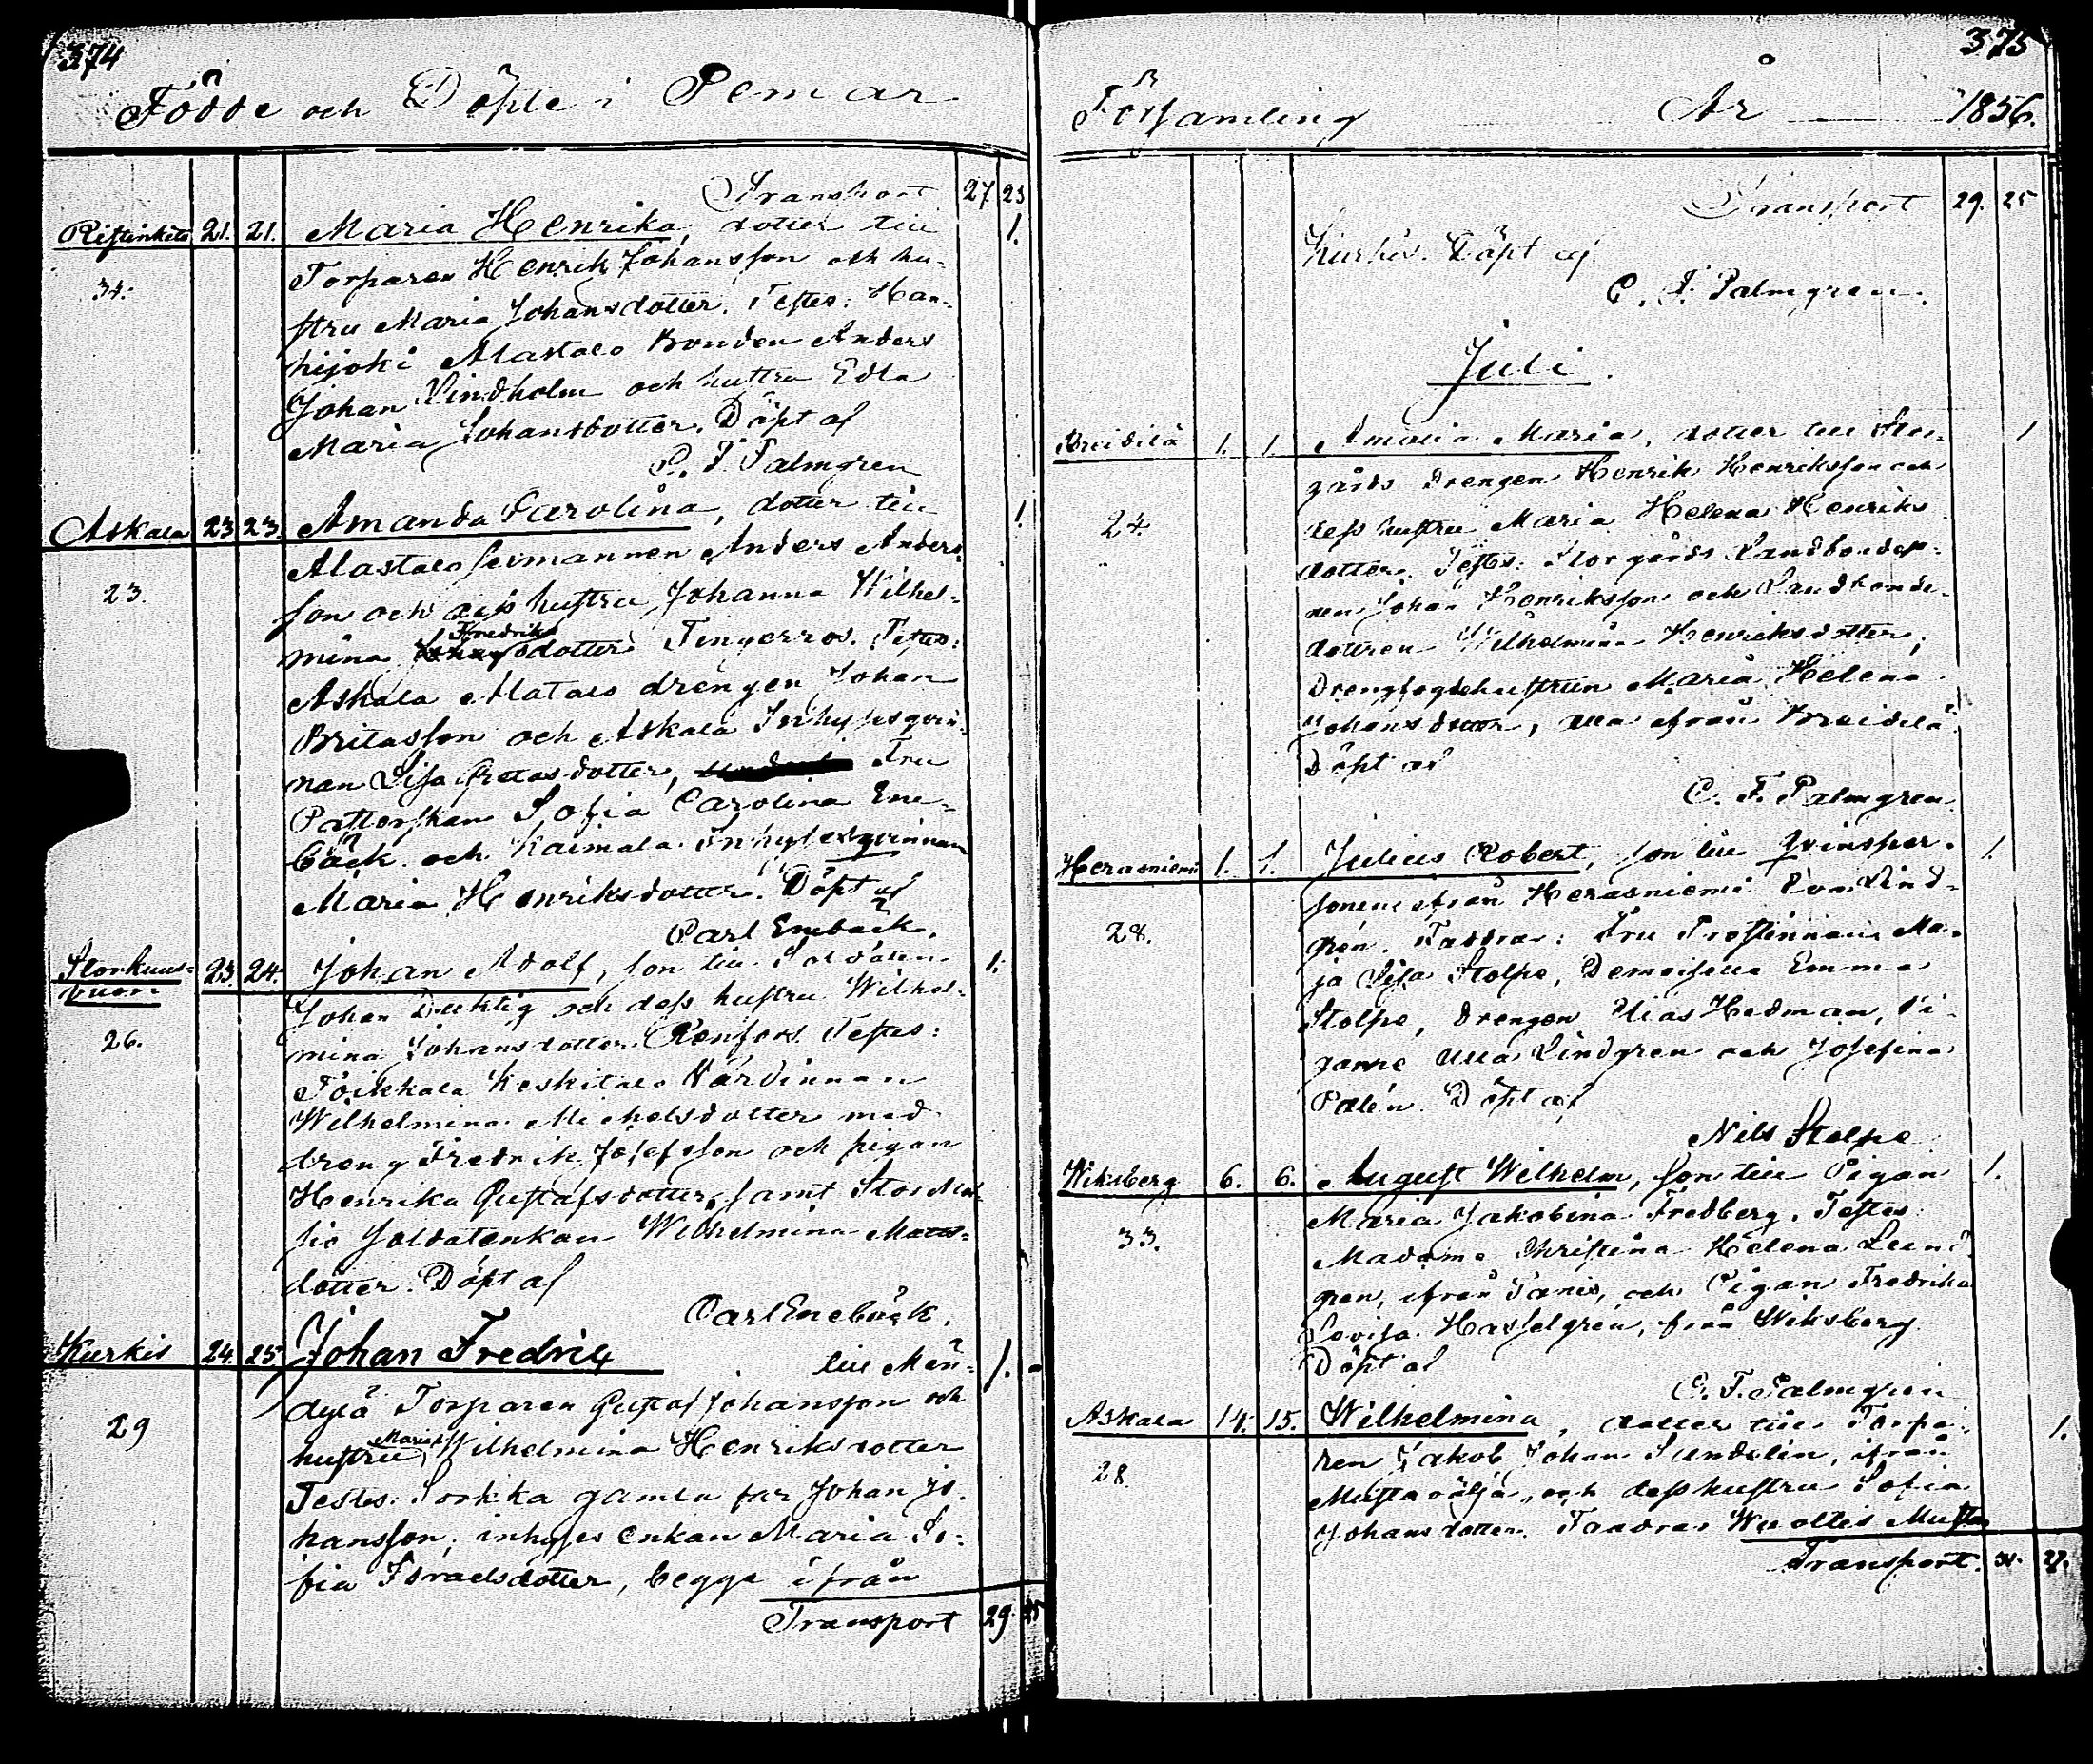 374
Födde och Döpte i Pemar
Transport 27. 23
Ristinkitö 21. 21. Maria Henrika, dotter till 1.
34. Torparen Henrik Johansson och hu-
stru Maria Johansdotter. Testes: Han-
hijoki Alastalo Bonden Anders
Johan Lindholm och hustru Edla
Maria Johansdotter. Döpt af
C. F. Palmgren
Askala 23 23. Amanda Carolina, dotter till 1.
Alastalo Anders Anders-
23. son och dess hustru Johanna Wilhel-
Fredriks
mina dotter Tingerroos. Testes:
Askala Alatalo drengen Johan
Britasson och Askala Inhysesqvin-
nan Lisa Gretasdotter, Fru
Pastorskan Sofia Carolina Ene-
bäck och Kaimala Inhysesqvinnan
Maria Henriksdotter. Döpt af
Carl Enebäck.
Storkuus- 23. 24. Johan Adolf, son till Soldaten 1.
vuori Johan Duktig och dess hustru Wilhel-
26. mina Johansdotter Renfors. Testes:
Toikkala Keskitalo Värdinnan
Wilhelmina Michelsdotter med
dreng Fredrik Josefsson och pigan
Henrika Gustafsdotter, samt Stor
Soldatenkan Wilhelmina Mats-
dotter. Döpt af
Carl Enebäck.
Kurkis 24. 25 Johan Fredric till Män- 1.
dylä Torparen Gustaf Johansson och
29 hustru Maria Wilhelmina Henriksdotter
Testes: Sorkka gamla far Johan Jo-
hansson, inhyses enkan Maria So-
fia Israelsdotter, begge ifrån
Transport 29. 25
375
Församling År 1856.
Transport 29. 25
Kurkis. Döpt af
C. F. Palmgren.
Juli.
Breidilä 1. 1. Amalia Maria, dotter till Stor- 1
gårds Drengen Henrik Henriksson och
24. dess hustru Maria Helena Henriks
dotter. Testes: Storgårds Landbonde
Johan Henriksson och Landbonde-
dottren Wilhelmina Henriksdotter,
Drengfogdehustrun Maria Helena
Johansdotter, alla ifrån Breidilä.
Döpt af
C. F. Palmgren
Herasniemi 1. 1. Julius Robert, son till Qvinsper- 1.
sonen ifrån Herasniemi Eva Lind-
28. gren. Faddrar: Fru Prostinnan Ma-
ja Lisa Stolpe, Demoiselle Emma
Stolpe, Drengen Elias Hedman, Pi-
gorne Ulla Lindgren och Josefina
Palén. Döpt af
Nils Stolpe
Wiksberg 6. 6. August Wilhelm, son till Pigan 1.
Maria Jakobina Fredberg. Testes
33. Madame Christina Helena Lund-
gren, ifrån Panis, och Pigan Fredrika
Lovisa Hasselgrén, från Wiksberg.
Döpt af
C. F. Palmgren
Askala 14. 15. Wilhelmina, dotter till Torpa- 1.
28. ren Jakob Johan Sundelin, ifrån
och dess hustru Sofia
Johansdotter. Faddrar Wuoltis
Transport. 31. 27.